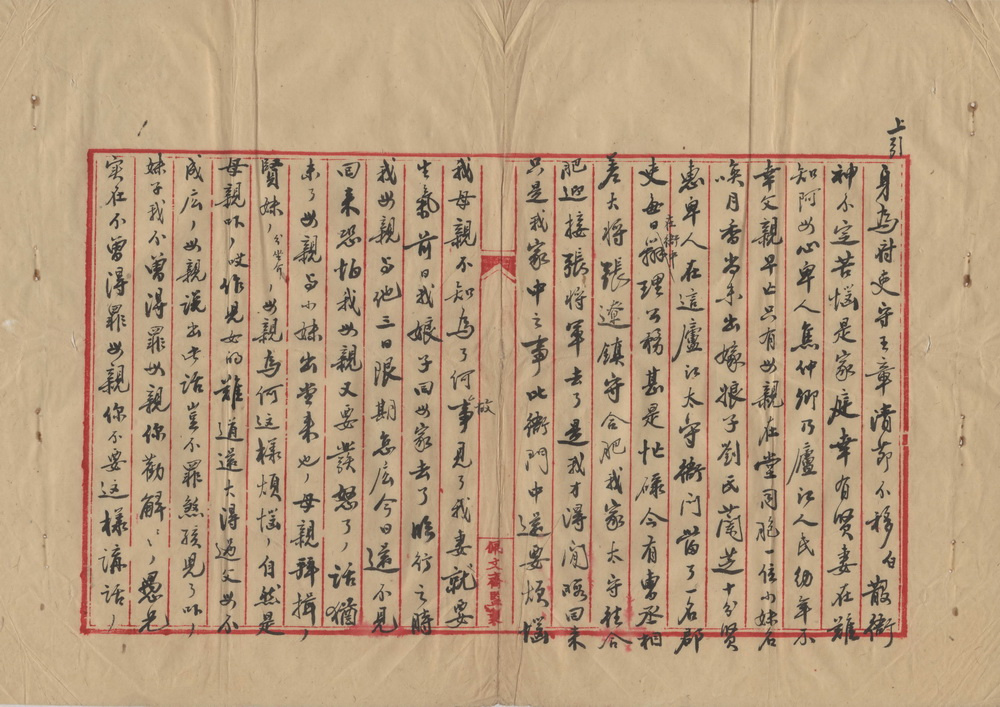 上引
身為府吏守王章清節不移白散衙
神不定苦惱是家庭幸有賢妻在難
知阿母心卑人焦仲卿乃廬江人氏幼年不
幸父親早亡只有母親在堂同胞一位小妹名
喚月香尚未出嫁娘子劉氏蘭芝十分賢
惠卑人在這廬江太守衙門當了一名郡
吏每日在衙中辦理公務甚是忙碌今有曹丞相
差大將張遼鎮守合肥我家太守往合
肥迎接張將軍去了是我才得閒暇回來
只是我家中之事比衙門中還要煩惱
我母親不知為了何故事見了我妻就要
生氣前日我娘子回母家去了臨行之時
我母親與他三日限期怎庅今日還不見
回來恐怕我母親又要發怒了，話猶
未了母親與小妹出堂來也，母親拜揖，
賢妹，分坐介，母親為何這樣煩惱，自然是
母親吓，哎作兒女的難道還大得過父母不
成庅，母親說出此話豈不罪煞孩兒了吓，
妹子我不曾得罪母親你勸解、，愚兄
实在不曾得罪母親你不要這樣講話，
佩文齋監製